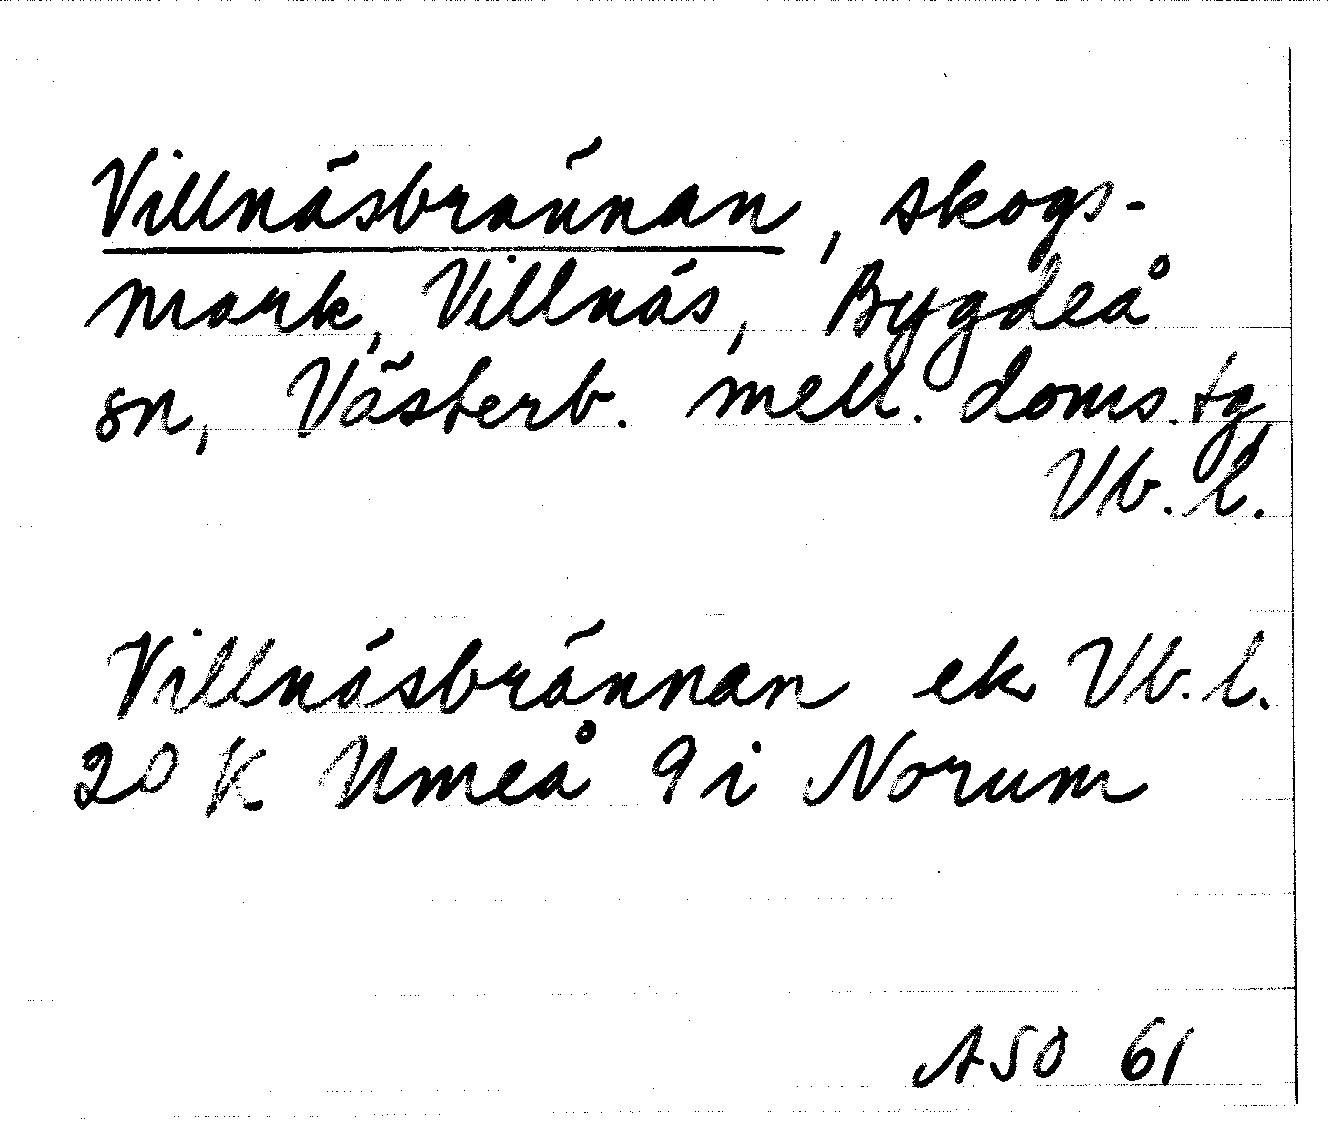 Villnäsbrännan, skogs-
mark, Villnäs, Bygdeå
sn, Västerb. mell. doms. tg,
Vb. l.
Villnäsbrännan ek Vb. l.
20 K Umeå 9 i Norum
ASO 61